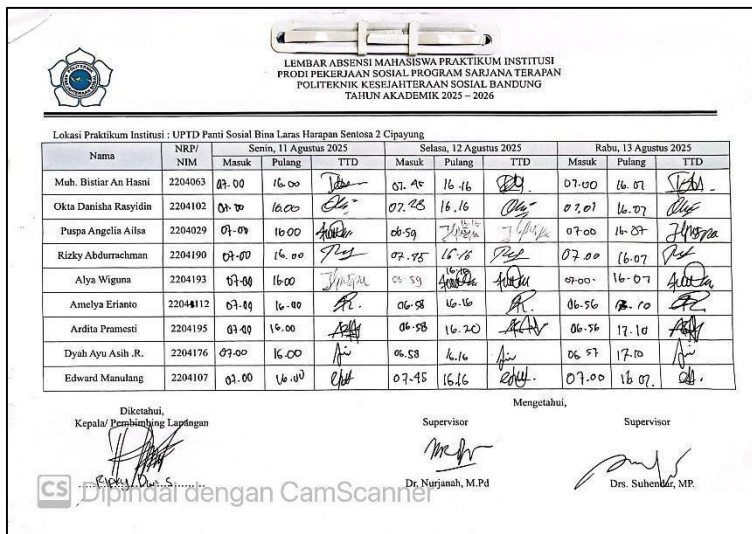 LEMBAR ABSENSI MAHASISWA PRAKTIKUM INSTITUSI
PRODI PEKERJAAN SOSIAL PROGRAM SARJANA TERAPAN
POLITEKNIK KESEJAHTERAAN SOSIAL BANDUNG
TAHUN AKADEMIK 2025 – 2026
Lokasi Praktikum Institusi : UPTD Panti Sosial Bina Laras Harapan Sentosa 2 Cipayung
Nama NRP/ NIM Senin, 11 Agustus 2025 Selasa, 12 Agustus 2025 Rabu, 13 Agustus 2025
Masuk Pulang TTD Masuk Pulang TTD Masuk Pulang TTD
Muh. Bistiar An Hasni 2204063 07.00 16.00 07.45 16.16 07.00 16.07
Okta Danisha Rasyidin 2204102 07.00 16.00 07.28 16.16 07.01 16.07
Puspa Angelia Ailsa 2204029 07-00 16 00 06:59 16.16 07.00 16-07
Rizky Abdurrachman 2204190 07-00 16.00 07.45 16.16 07.00 16.07
Alya Wiguna 2204193 07-00 16.00 06:59 07.00 16-07
Amelya Erianto 2204112 07-00 16-00 06.58 16-16 06.56
Ardita Pramesti 2204195 07-00 16.00 06.58 16.20 06.56 17.10
Dyah Ayu Asih .R. 2204176 07.00 16.00 06.58 16.16 06 57 17.10
Edward Manulang 2204107 07.00 16.00 07.45 16.16 07.00 16 07.
Diketahui,
Kepala/ Pembimbing Lapangan
Mengetahui,
Supervisor Supervisor
Dr. Nurjanah, M.Pd Drs. Suhendar, MP.
CS Dipindai dengan CamScanner